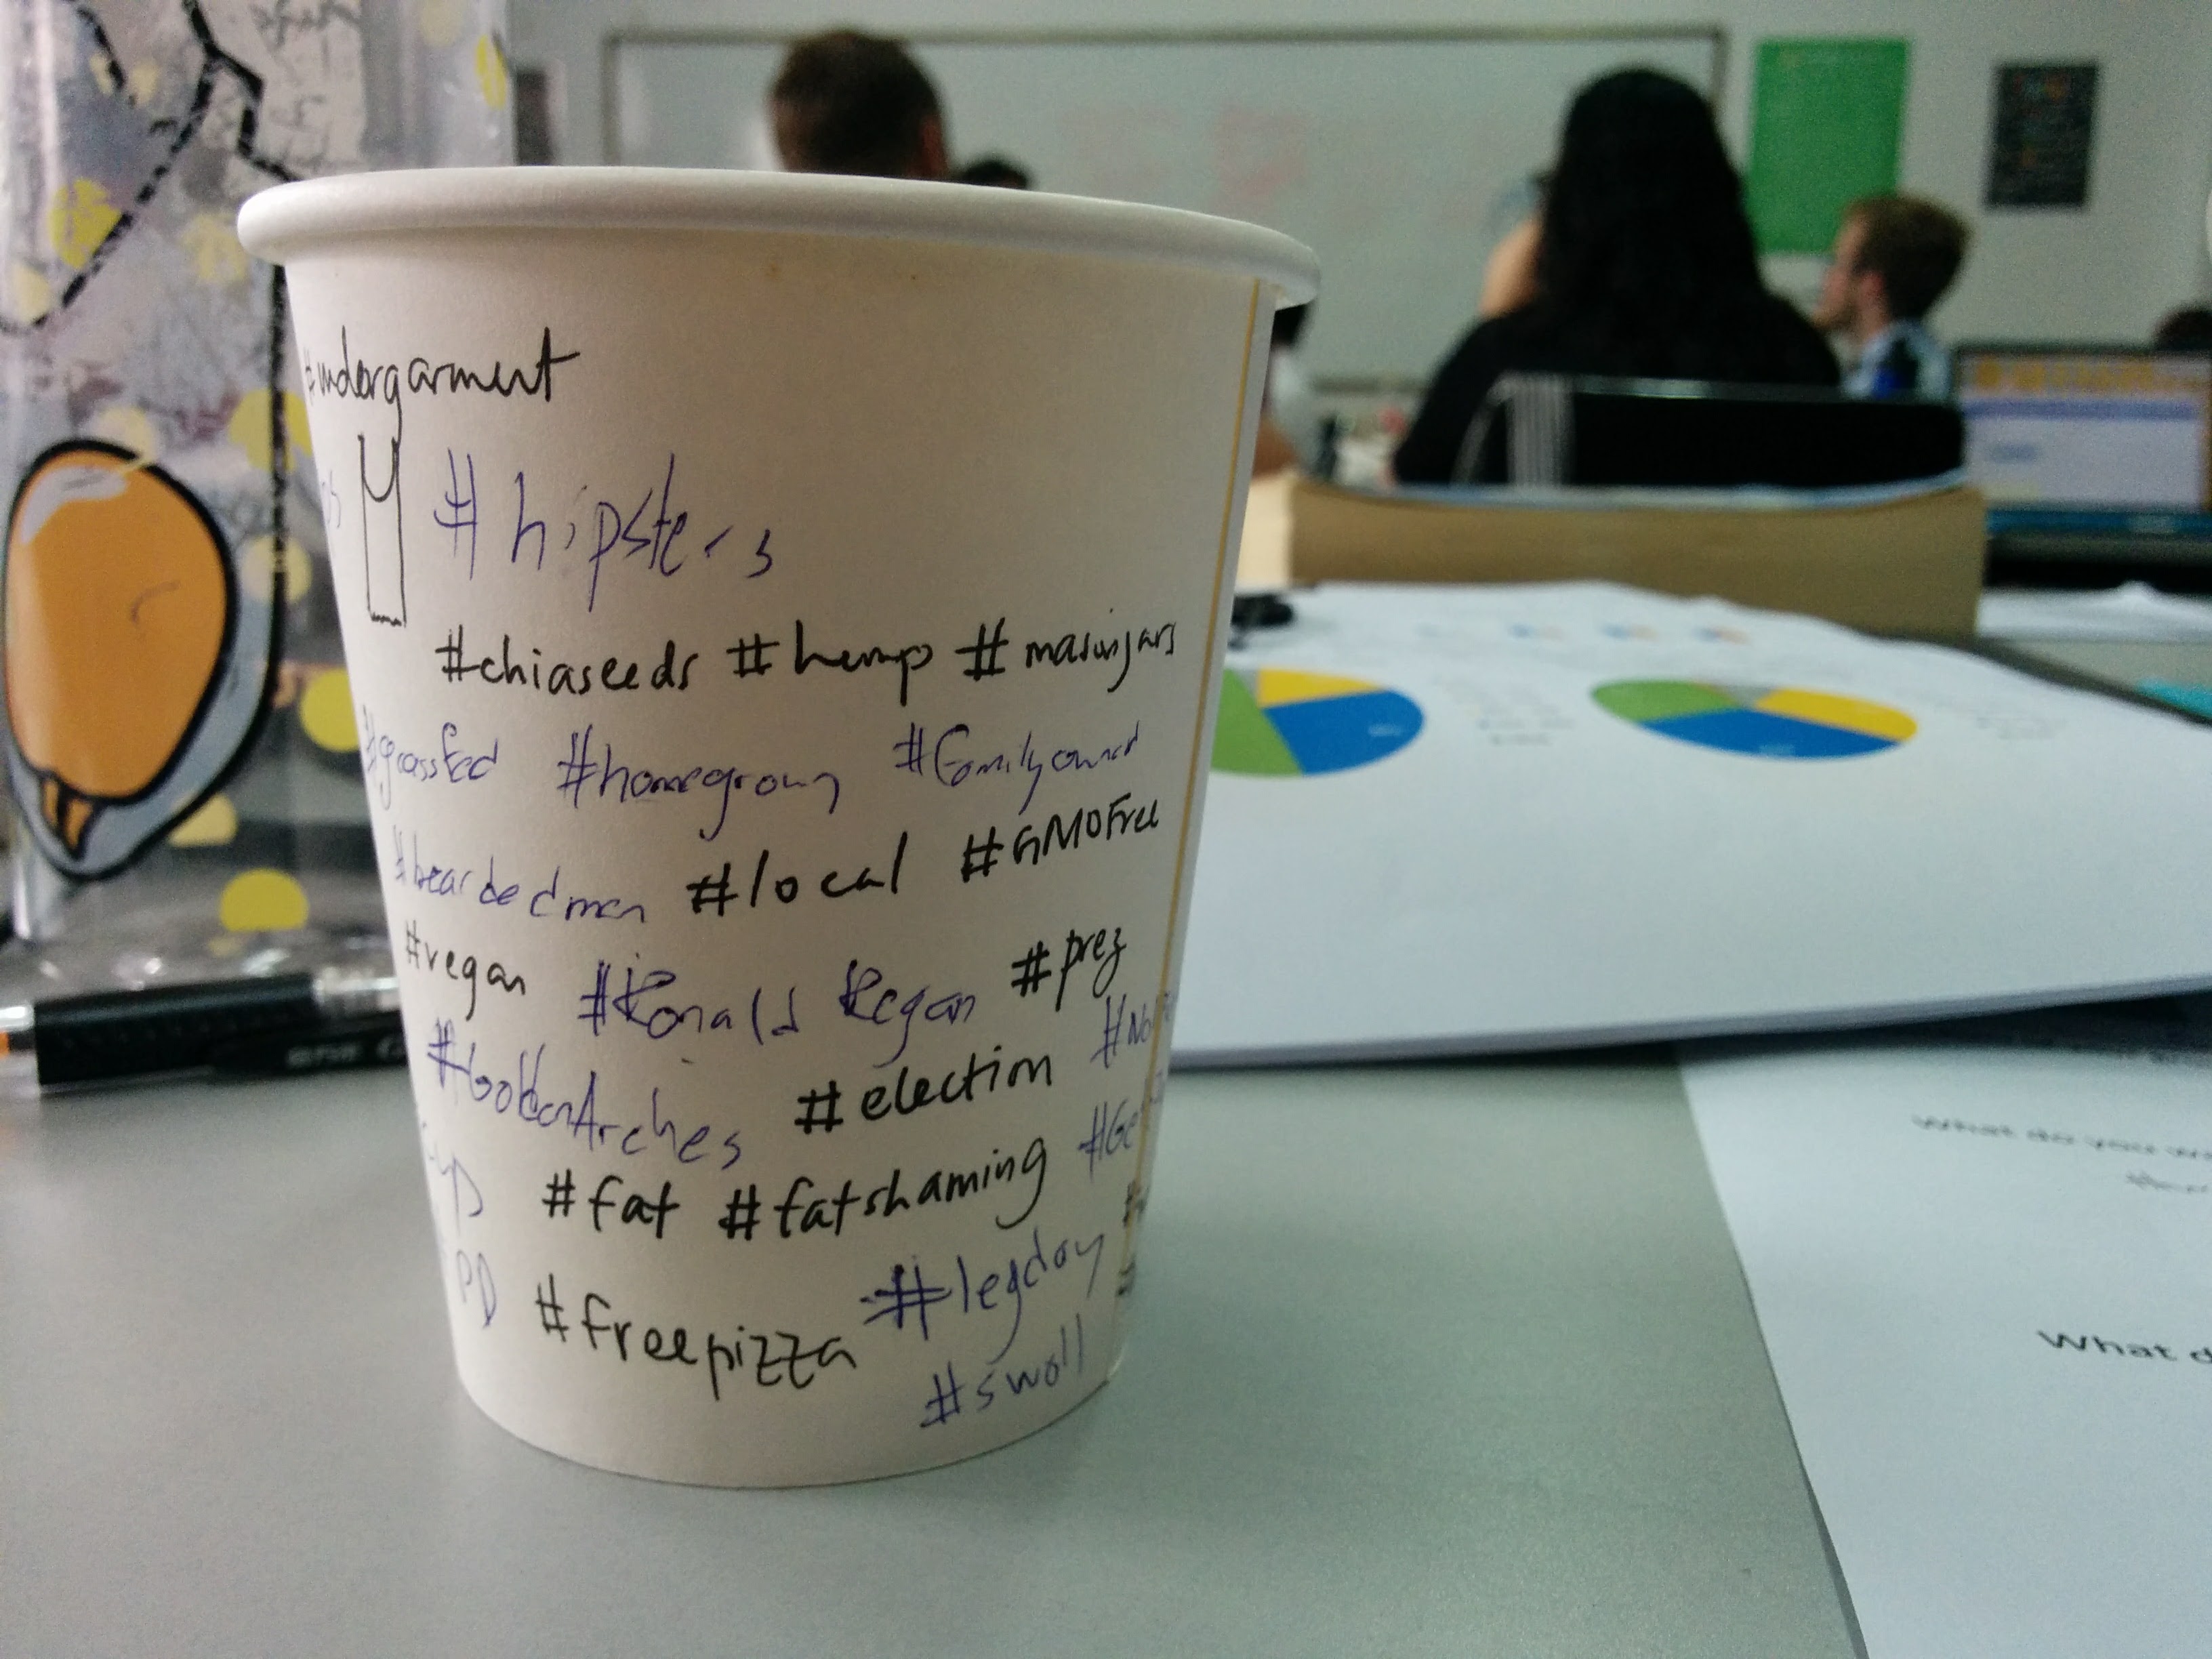 #undergarment
#hipsters
#chiaseeds #hemp #masonjars
#grassfed #homegrown #Familyowned
#beardedmen #local #GMOFree
#vegan #Ronald Regan #prez
#GoldenArches #election
#fat #fatshaming
#freepizza #legday
#swoll
What do you
What d